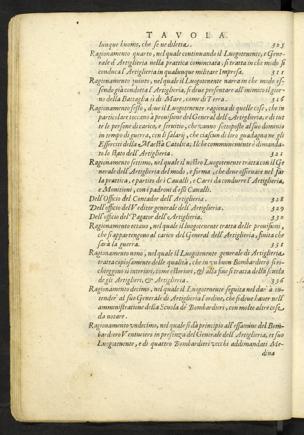 TAVOLA.
lunque huomo, che se ne diletta. 303
Ragionamento quarto, nel quale continuando il Luogotenente, e Gene-
ral d'Artiglieria nella prattica cominciata, si tratta in che modo si
conduca l'Artiglieria in qualunque militare Impresa. 311
Ragionamento quinto, nel quale il Luogotenente narra in che modo es-
sendo già condotta l'Artiglieria, si deue presentare all'inimico il gior-
no della Battaglia sì di Mare, come di Terra. 316
Ragionamento sesto, doue il Luogotenente ragiona di quelle cose, che in
particolare toccano à prouisione del General dell'Artiglieria, e di tut-
te le persone di carico, e seruitio, che vanno sottoposte al suo dominio
in tempo di guerra, con il salario, che ciascun di loro guadagna ne gli
Esserciti della Maestà Catolica; Et che communemente è dimanda-
to lo stato dell'Artiglieria. 321
Ragionamento settimo, nel quale il nostro Luogotenente tratta con il Ge
nerale dell'Artiglieria del modo, e forma, che deue osseruare nel far
la prattica, e partito de i Caualli, e Carri da condurre l'Artiglieria,
e Monitioni, con i padroni d'essi Caualli.
Dell'Officio del Contador dell'Artiglieria. 328
Dell'officio del Veditor generale dell'Artiglieria. 329
Dell'officio del Pagator dell'Artiglieria. 330
Ragionamento ottauo, nel quale il luogotenente tratta delle prouisioni,
che si appartengono al carico del General dell'Artiglieria, finita che
sarà la guerra. 331
Ragionamento nono, nel quale il Luogotenente generale di Artiglieria
tratta copiosamente delle qualità, che in vn buon Bombardiero si ri-
chieggono sì interiori, come esteriori, & alla fine si tratta della scuola
de gli Artiglieri, & Artiglieria. 336
Ragionamento decimo, nel quale il Luogotenente seguita nel dar' à in-
tender' al suo Generale di Artiglieria l'ordine, che si deue hauer nell'
amministratione della Scuola de' Bombardieri, con molte altre cose,
da notare.
Ragionamento vndecimo, nel quale si dà principio all'essamine del Bom-
bardiero Venturiero in presenza del Generale dell'Artiglieria, et suo
Luogotenente, e di quattro Bombardieri vecchi addimandati Me-
dina